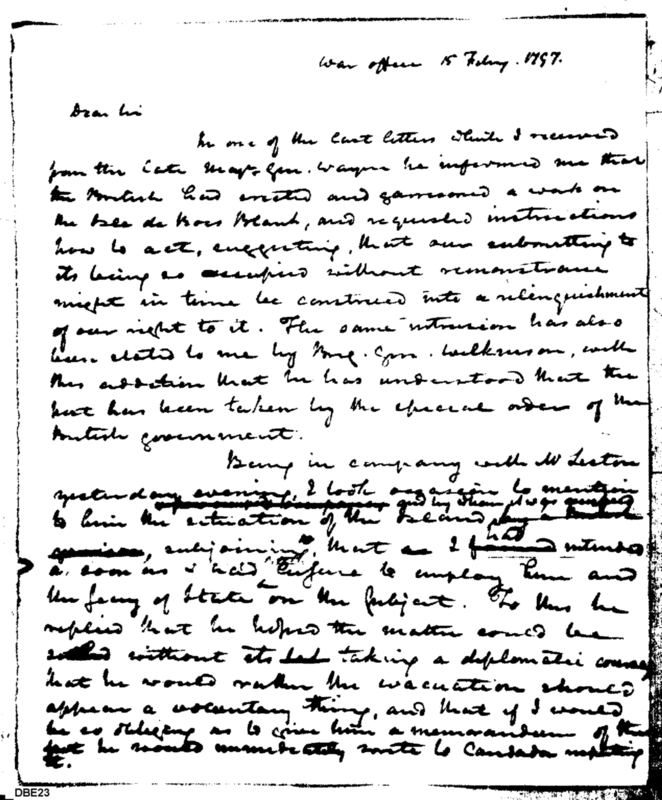 War office 15 Feby. 1797.
Dear Sir
In one of the last letters which I received
from the late Majr. Gen. Wayne he informed me that
the British had erected and garrisoned a work on
the Isle de Bois Blank, and requested instructions
how to act, suggesting, that our submitting to
its being so occupied without remonstrance
might in time be construed into a relinquishment
of our right to it. The same intrusion has also
been stated to me by Brig. Gen. Wilkinson, with
this addition that he has understood that the
post has been taken by the special orders of the
British government.
Being in company with Mr Liston
yesterday evening, I took occasion to mention
and by whom it was
to him the situation of the Island
had
subjoining, that as I intended
as soon as I had to employ him and
the Secy of State on the subject. To this he
replied that he hoped the matter could be
without its taking a diplomatic course
that he would rather the evacuation should
appear a voluntary thing, and that if I would
be so obliging as to give him a memorandum of the
he would immediately write to Candada respecting
it.
DBE23